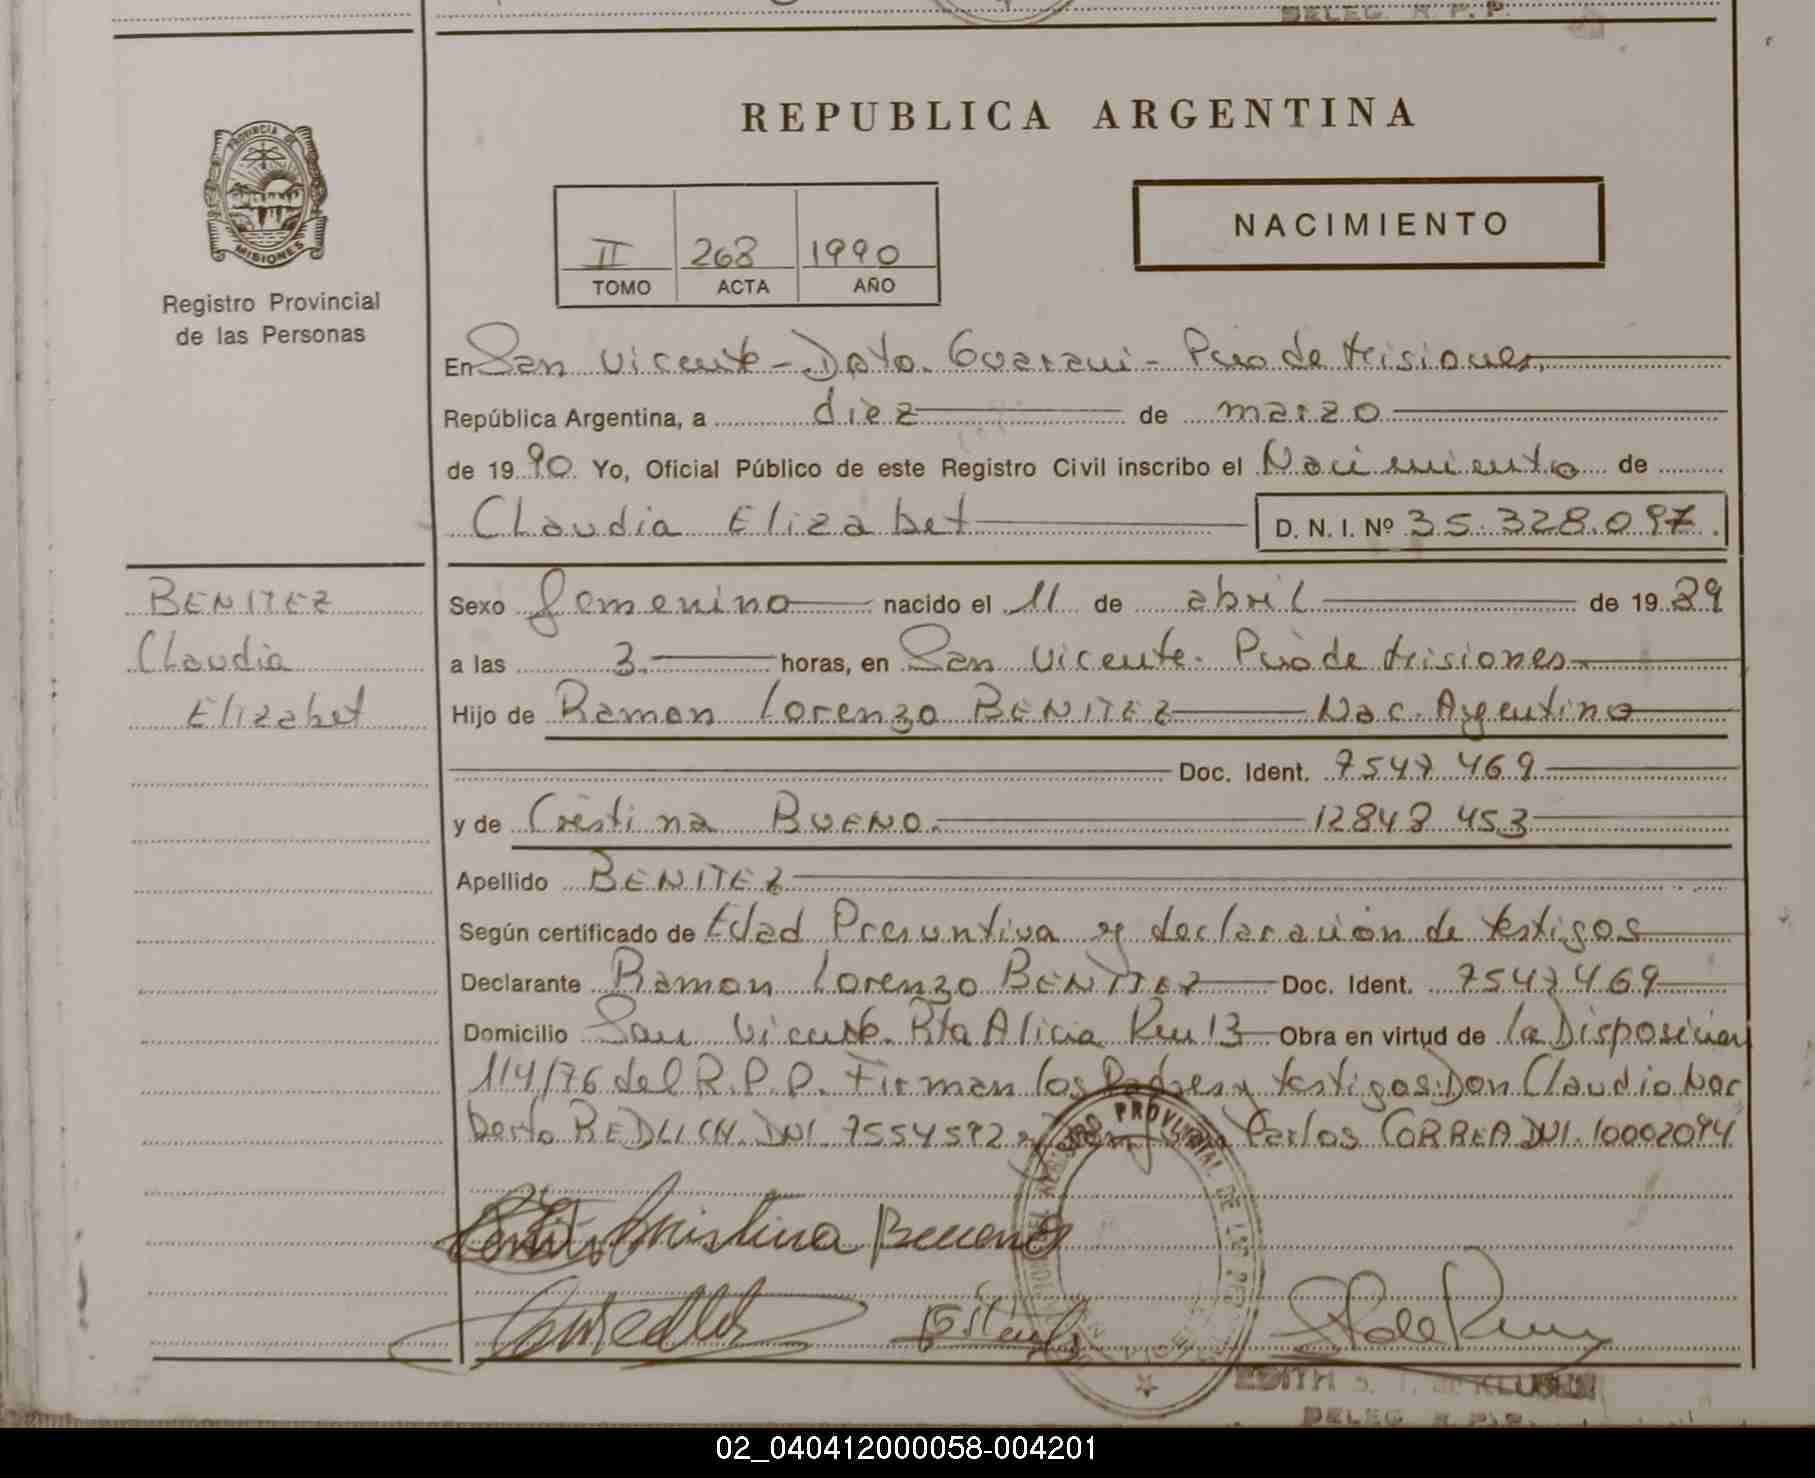 DELEG. R. P. P.
REPUBLICA ARGENTINA
PROVINCIA DE
MISIONES
NACIMIENTO
II 268 1990
TOMO ACTA AÑO
Registro Provincial
de las Personas
En San Vicente - Dpto. Guarani - Pcia de Misiones
República Argentina, a diez de marzo
de 19 90 Yo, Oficial Público de este Registro Civil inscribo el Nacimiento de
Claudia Elizabet D. N. I. Nº 35.328.097.
BENITEZ
Claudia
Elizabet
Sexo femenino nacido el 11 de abril de 19 89
a las 3 horas, en San Vicente - Pcia de Misiones
Hijo de Ramon Lorenzo BENITEZ Nac. Argentino
Doc. Ident. 7547 469
y de Cristina BUENO. 12848 453
Apellido BENITEZ
Según certificado de Edad Presuntiva y declaración de testigos
Declarante Ramon Lorenzo BENITEZ Doc. Ident. 7547469
Domicilio San Vicente Rta Alicia Km 13 Obra en virtud de la Disposición
114/76 del R.P.P. Firman los Padres y testigos: Don Claudio Nor
berto REDLICH DNI. 7554592 y Carlos CORREA DNI. 10002094
Cristina Bueno
REGISTRO PROVINCIAL DE LAS
EDITH S.
DELEG. R.P.P.
02_040412000058-004201